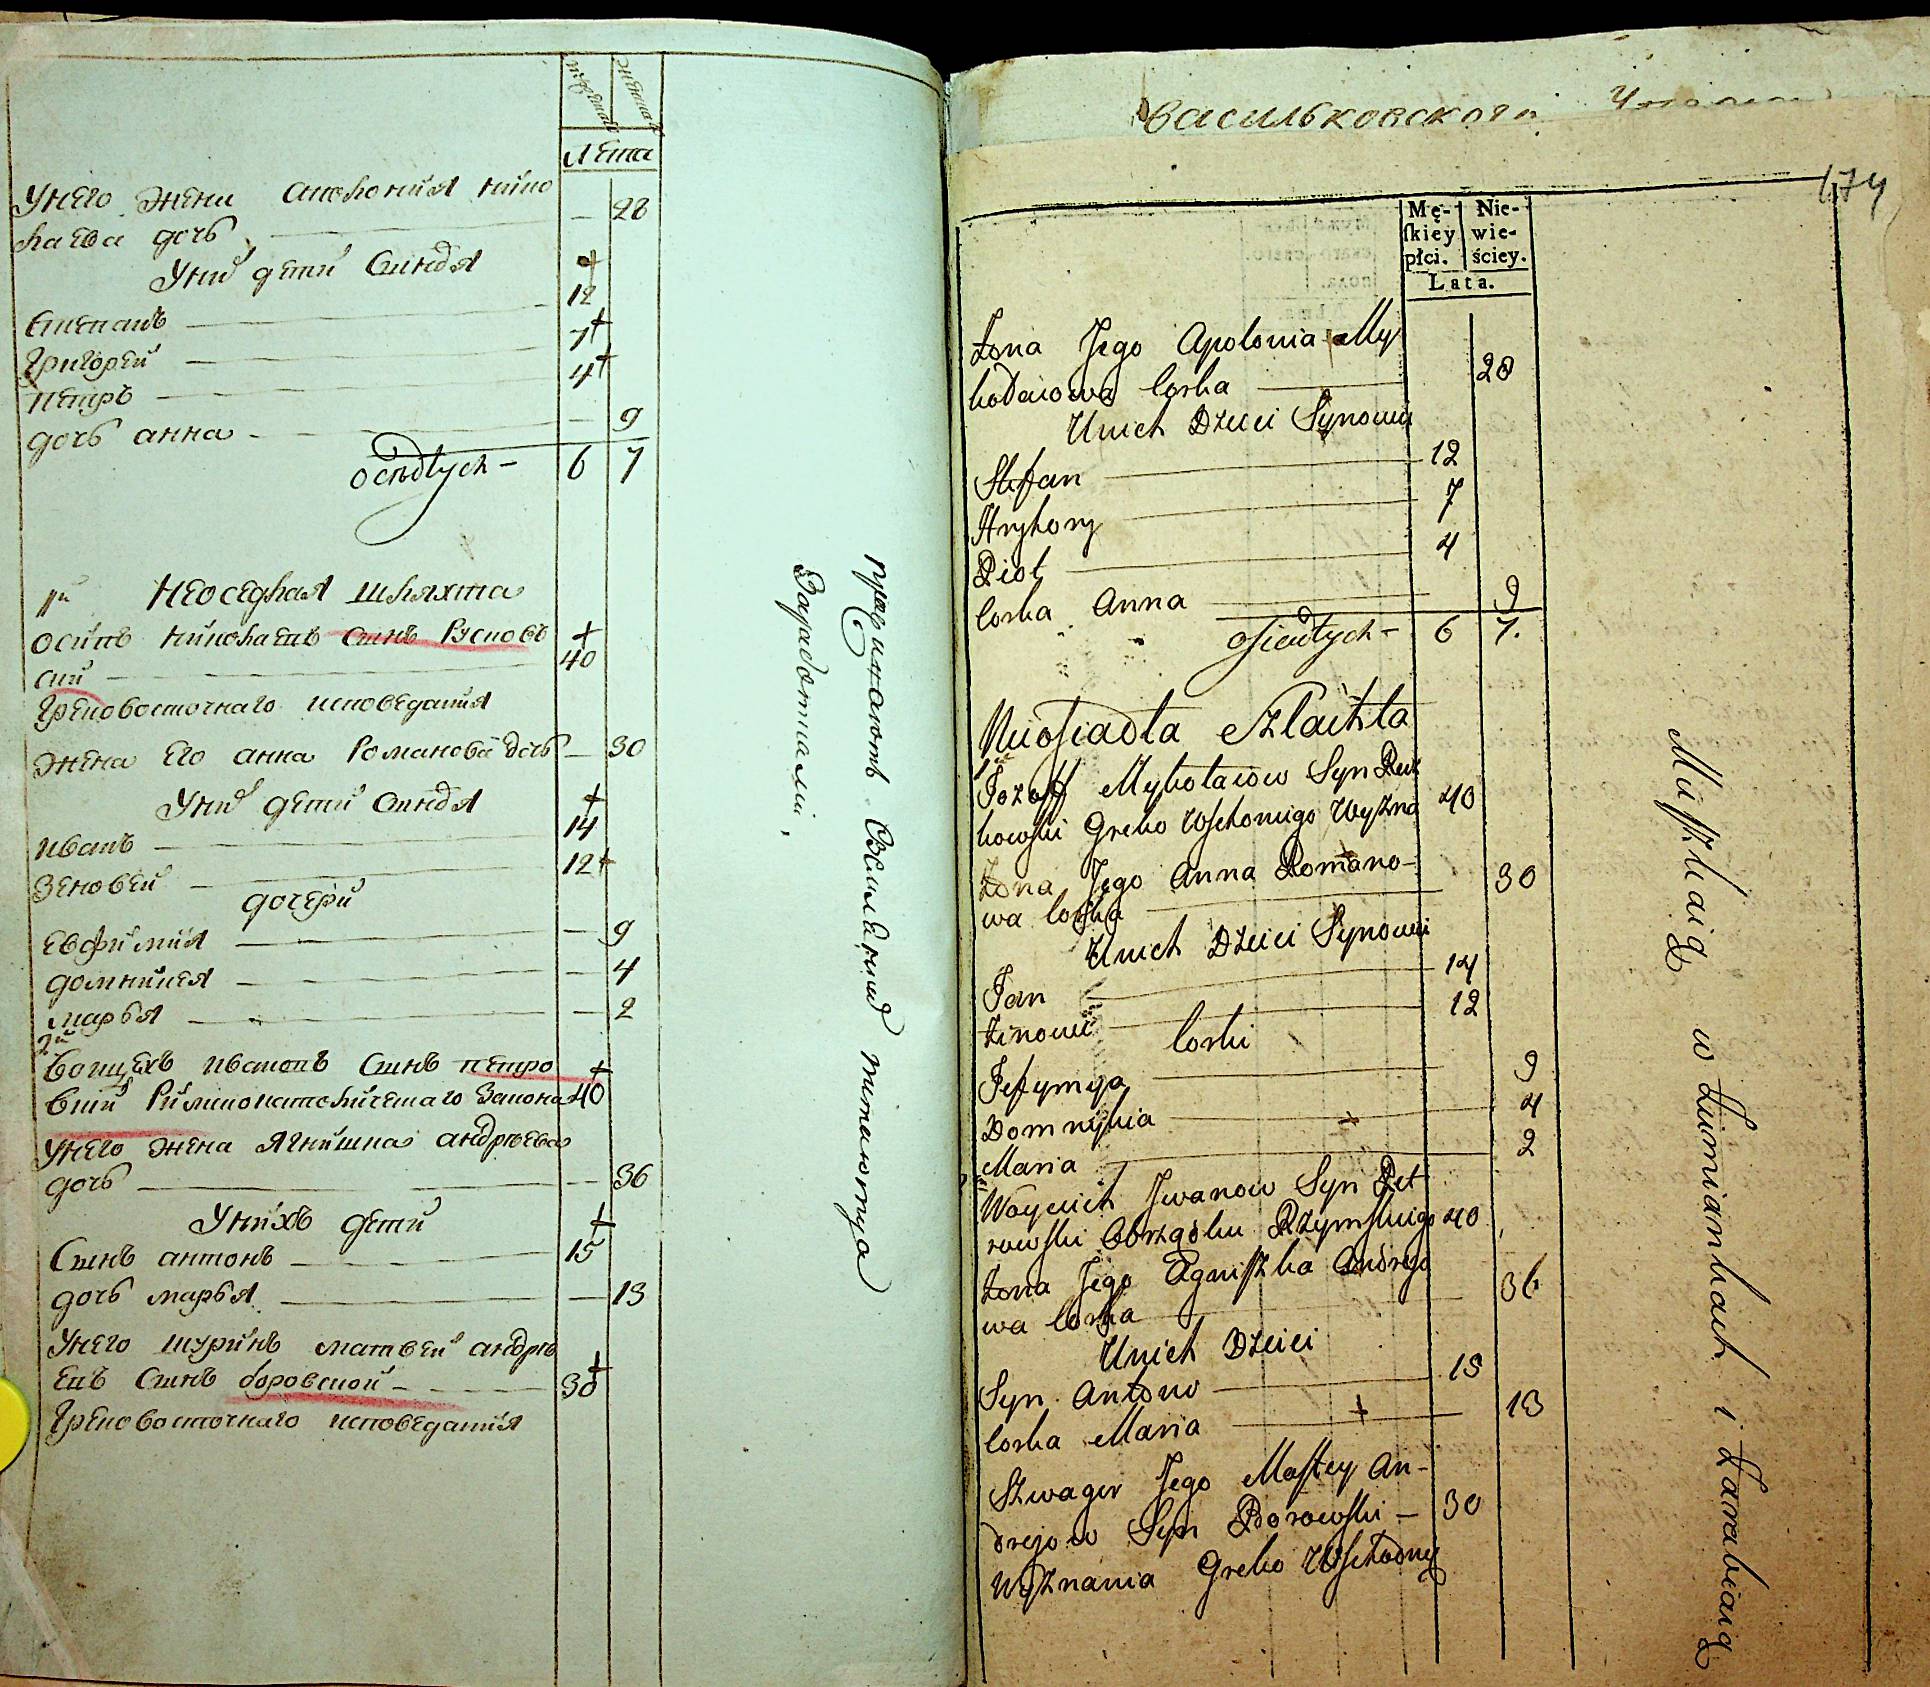 мужеска
женска
лета
Унего жена аполонiя нико
лаева дочь — 28
Унихъ дети Синовя
Степанъ 12
Григорей 7
петръ 4
дочь анна — 9
осѣdłych — 6 7
1й Неоседлая шляхта
осипъ николаевъ синъ Русков
ский 40
Грековосточнаго исповедания
жена его анна Романова дочь — 30
Унихъ дети синовя
иванъ 14
Зеновей 12
дочери
евфимия — 9
домникия — 4
марья — 2
2й
Войцехъ ивановъ Синъ петро
вский Римскокатолическаго Закона 40
Унего жена Ягнишка андреева
дочь — 36
Унихъ дети
Синъ антонъ 15
дочь марья — 13
Унего шуринъ матвей андре
евъ Синъ боровской 30
Грековосточнаго исповедания
проживаютъ Вземлянкахъ питаются
Заработками,
Васильковского
174
Mę-
skiey
płci.
Nie-
wie-
ściey.
Lata.
Żona Jego Apolonia My
kołaiowa Corka — 28
Unich Dzieci Synowie
Stefan 12
Hryhory 7
Piotr 4
Corka Anna 9
osiadłych – 6 7.
Nieosiadła Szlachta
1й
Jozeff Mykołaiow Syn Rus
kowski Greko Wschoniego Wyzna 40
Żona Jego Anna Romano-
wa Corka 30
Unich Dzieci Synowie
Jan 14
Zinowi 12
Corki
Jefymya 9
Domnykia 4
Maria 2
Woyciech Iwanow Syn Pet
rowski Obrządku Rzymskiego 40
Żona Jego Agniszka Andreje
wa Corka 36
Unich Dzieci
Syn Antonij 15
Corka Maria 13
Szwager Jego Matwey An-
drejow Syn Borowski – 30
Wyznania Greko Wschodny
Mieszkaią w Ziemiankach i Zarabiaią